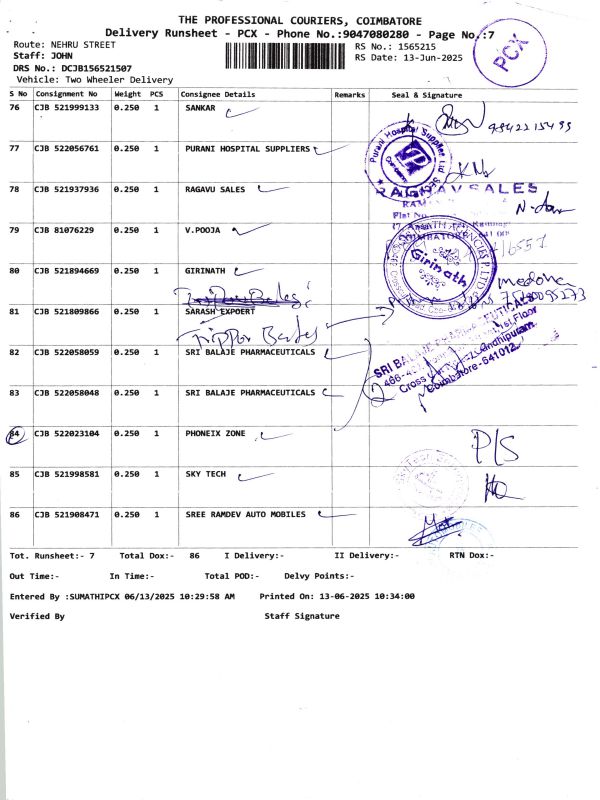 THE PROFESSIONAL COURIERS, COIMBATORE
Delivery Runsheet - PCX - Phone No.:9047080280 - Page No.:7
Route: NEHRU STREET
RS No.: 1565215
Staff: JOHN
RS Date: 13-Jun-2025
DRS No.: DCJB156521507
Vehicle: Two Wheeler Delivery
PCX
S No Consignment No Weight PCS Consignee Details Remarks Seal & Signature
76 CJB 521999133 0.250 1 SANKAR
77 CJB 522056761 0.250 1 PURANI HOSPITAL SUPPLIERS
Purani Hospital Supplies
78 CJB 521937936 0.250 1 RAGAVU SALES
RAGAVU SALES
79 CJB 81076229 0.250 1 V.POOJA
80 CJB 521894669 0.250 1 GIRINATH
Girinath
81 CJB 521809866 0.250 1 SARASH EXPOERT
82 CJB 522058059 0.250 1 SRI BALAJE PHARMACEUTICALS
SRI BALAJE PHARMACEUTICALS
Gandhipuram
Coimbatore-641012
83 CJB 522058048 0.250 1 SRI BALAJE PHARMACEUTICALS
84 CJB 522023104 0.250 1 PHONEIX ZONE
P/S
85 CJB 521998581 0.250 1 SKY TECH
86 CJB 521908471 0.250 1 SREE RAMDEV AUTO MOBILES
Tot. Runsheet:- 7 Total Dox:- 86 I Delivery:- II Delivery:- RTN Dox:-
Out Time:- In Time:- Total POD:- Delvy Points:-
Entered By :SUMATHIPCX 06/13/2025 10:29:58 AM Printed On: 13-06-2025 10:34:00
Verified By Staff Signature